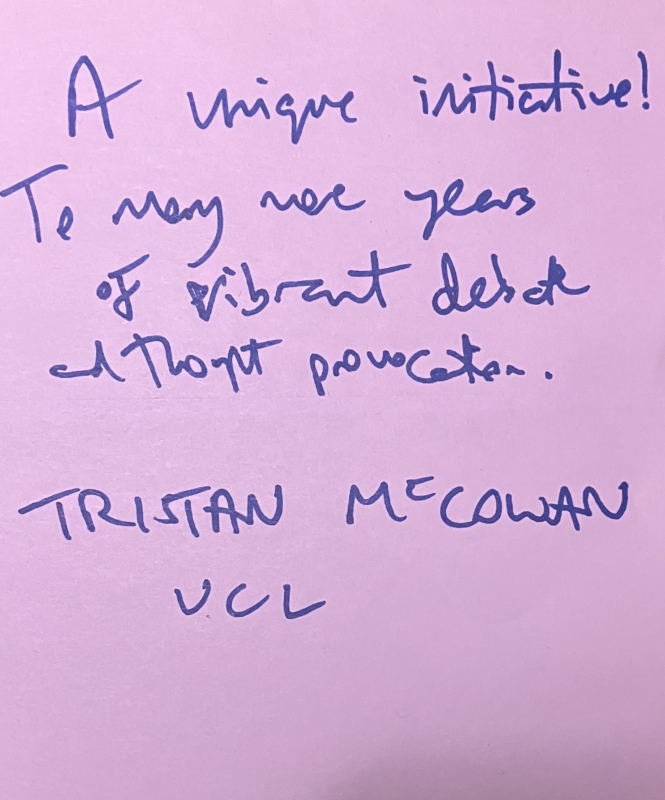 A unique initiative!
To many more years
of vibrant debate
and thought provocation.
TRISTAN McCOWAN
UCL